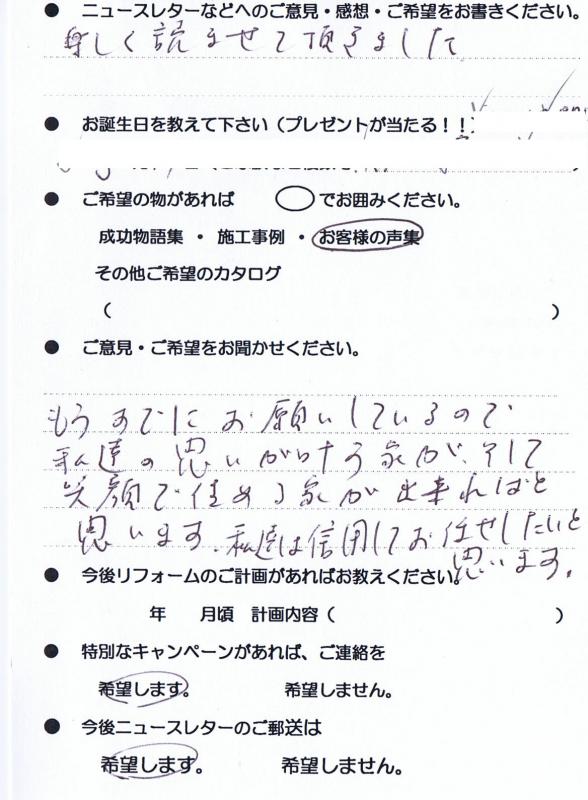 ● ニュースレターなどへのご意見・感想・ご希望をお書きください。
楽しく読ませて頂きました
● お誕生日を教えて下さい（プレゼントが当たる！！
● ご希望の物があれば ◯でお囲みください。
成功物語集 ・ 施工事例 ・ お客様の声集
その他ご希望のカタログ
（ ）
● ご意見・ご希望をお聞かせください。
もうすでにお願いしているので
私達の思いがけする家が、そして
笑顔で住める家が出来ればと
思います。私達は信用してお任せしたいと
思います。
● 今後リフォームのご計画があればお教えください。
年 月頃 計画内容（ ）
● 特別なキャンペーンがあれば、ご連絡を
希望します。 希望しません。
● 今後ニュースレターのご郵送は
希望します。 希望しません。